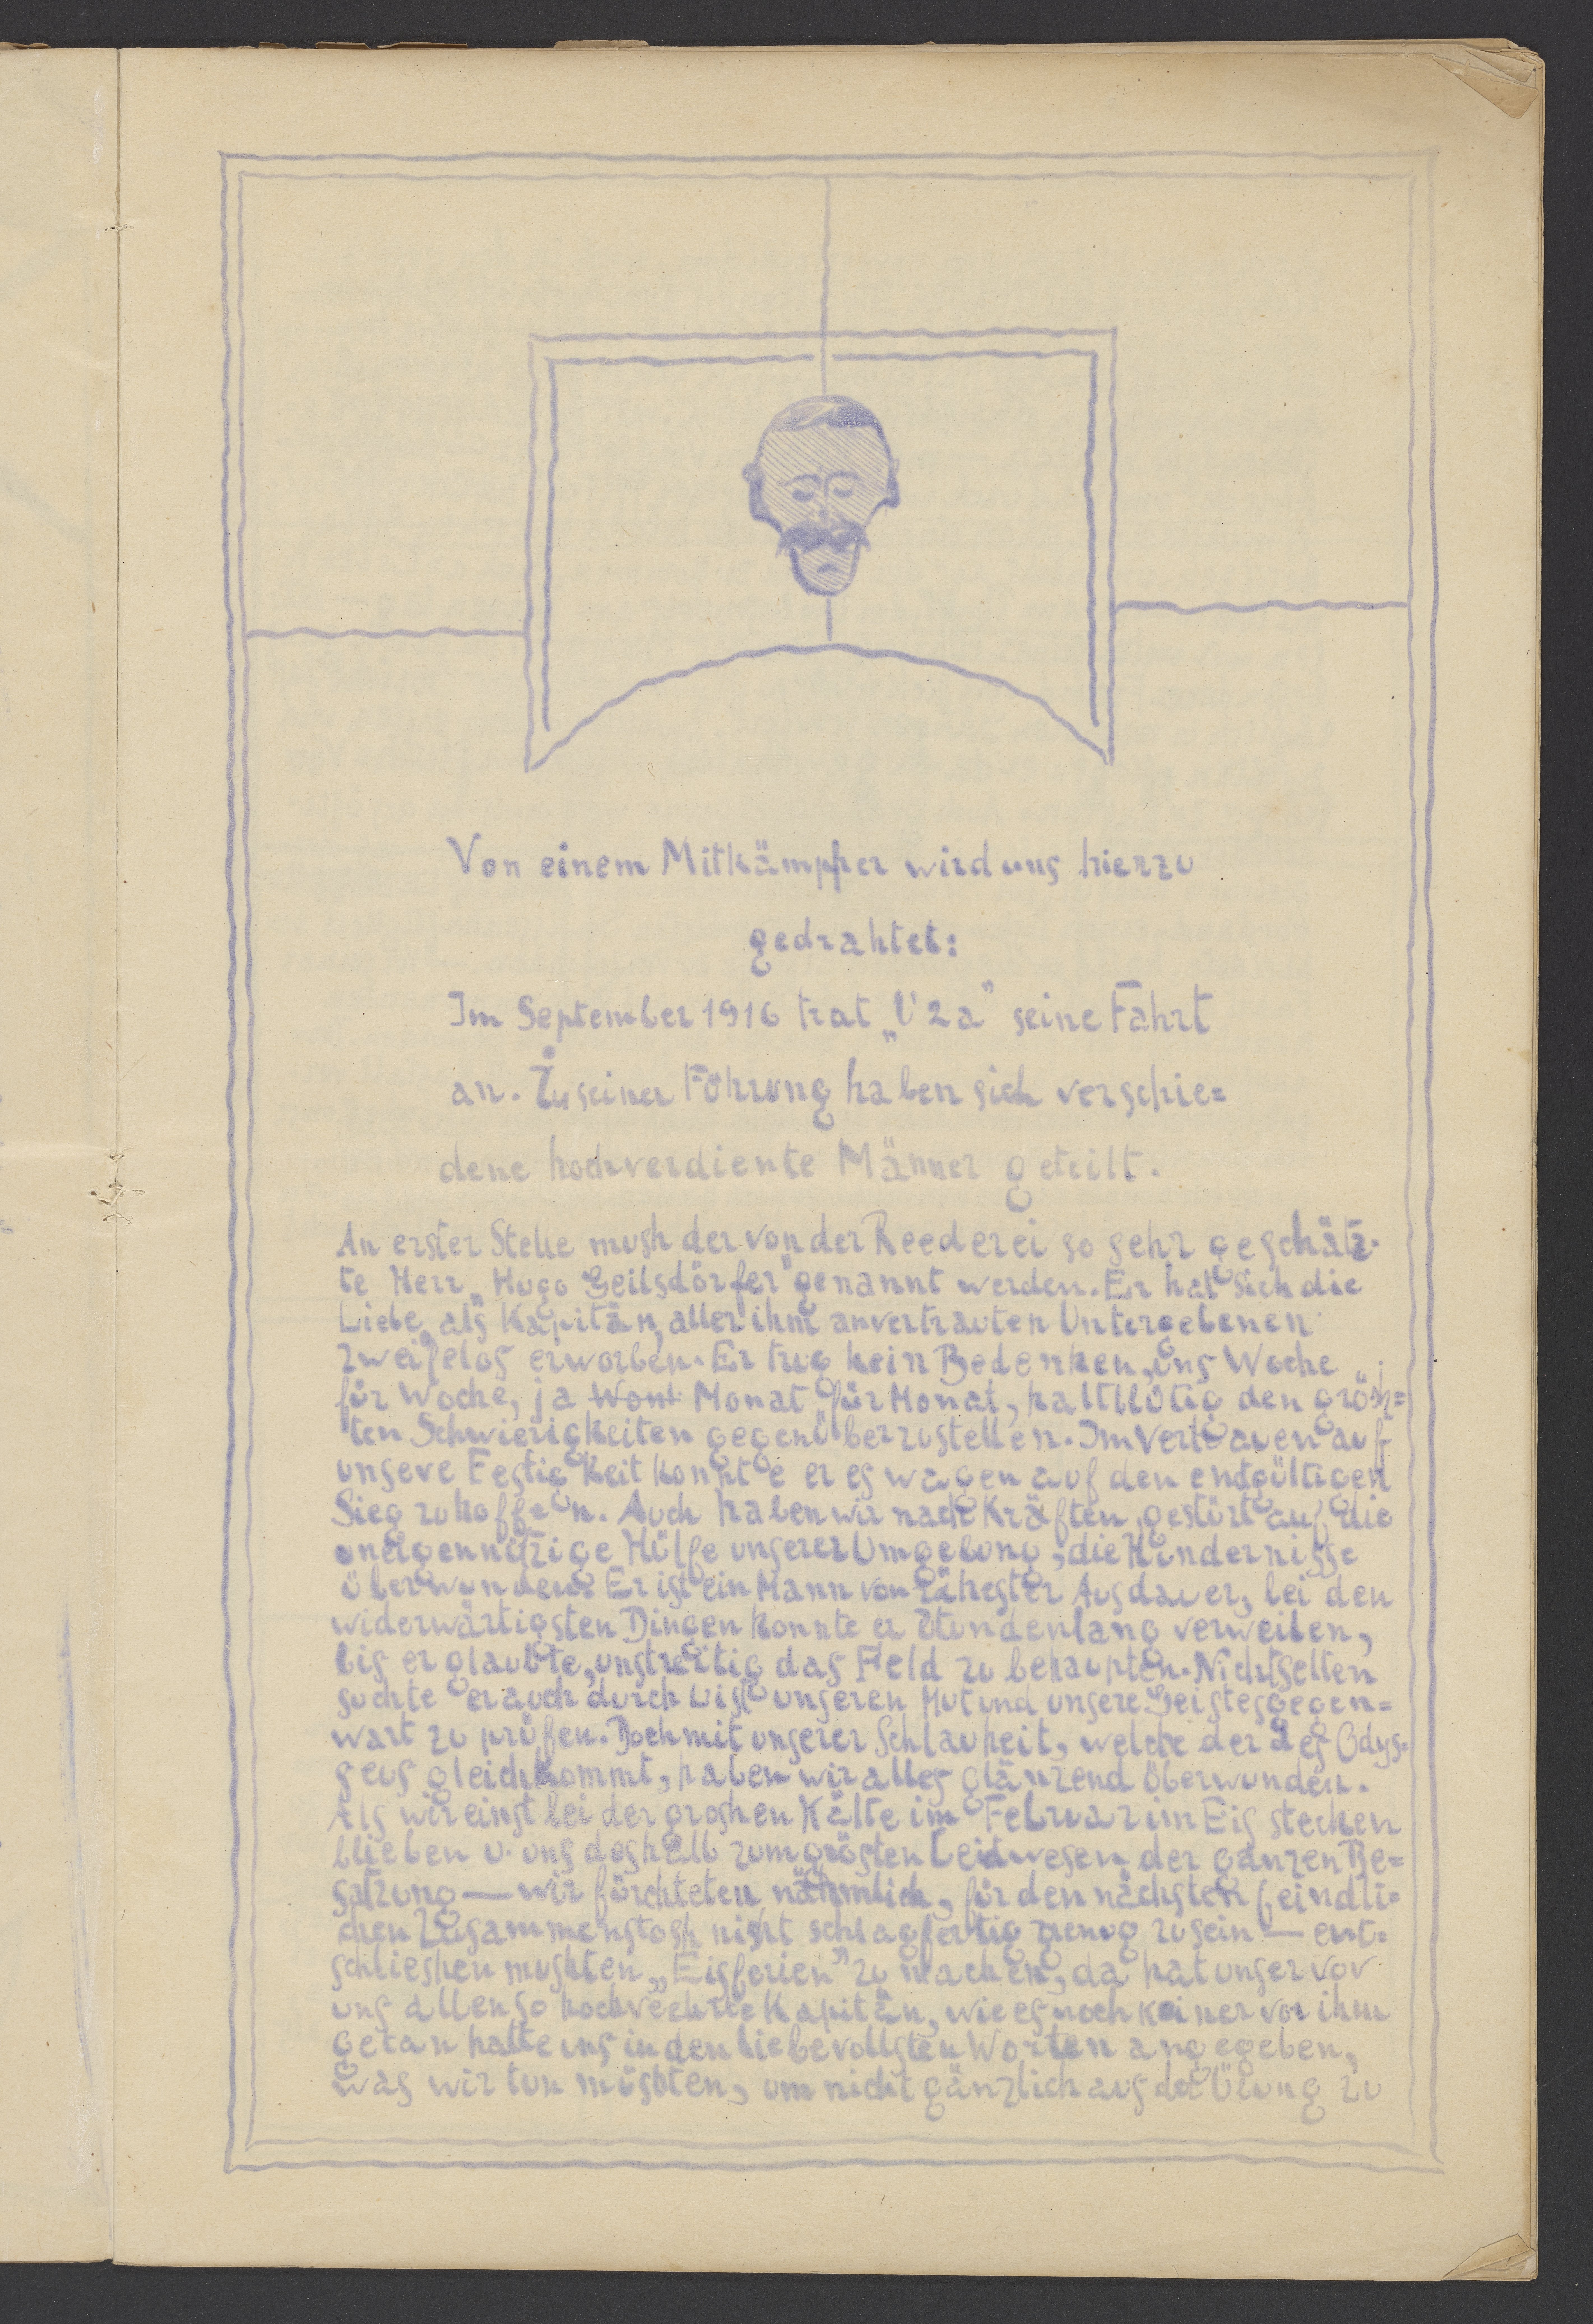 Von einem Mitkämpfer wird uns hierzu
gedrahtet:
Im September 1916 trat „U 2a" seine Fahrt
an. Zu seiner Führung haben sich verschie=
dene hochverdiente Männer geteilt.
An erster Stelle mush der von der Reederei so sehr geschätz-
te Herr „Hugo Geilsdörfer" genannt werden. Er hat sich die
Liebe, als Kapitän, aller ihm anvertrauten Untergebenen
zweifelos erworben. Er trug kein Bedenken, uns Woche
für Woche, ja Wont Monat für Monat, kaltblütig den grösh=
ten Schwierigkeiten gegenüberzustellen. Im Vertrauen auf
unsere Festigkeit konnte er es wagen auf den endgültigen
Sieg zu hoffen. Auch haben wir nach Kräften, gestürt auf die
uneigennützige Hülfe unserer Umgebung, die Hindernisse
überwunden. Er ist ein Mann von zähester Ausdauer, bei den
widerwärtigsten Dingen konnte er Stundenlang verweilen,
bis er glaubte, unstreitig das Feld zu behaupten. Nichtselten
suchte er auch durch List unseren Mut und unsere Geistesgegen=
wart zu prüfen. Doch mit unserer Schlauheit, welche der des Odys=
seus gleichkommt, haben wir alles glänzend überwunden.
Als wir einst bei der groshen Kälte im Februar im Eis stecken
blieben u. uns deshalb zum grösten Leidwesen der ganzen Be=
satzung — wir fürchteten nähmlich, für den nächsten feindli=
chen Zusammenstosh nicht schlagfertig genug zu sein — ent=
schlieshen mushten „Eisferien" zu machen, da hat unser von
uns allen so hochverehrte Kapitän, wie es noch keiner vor ihm
getan hatte uns in den liebevollsten Worten angegeben,
was wir tun müshten, um nicht gänzlich aus der Übung zu